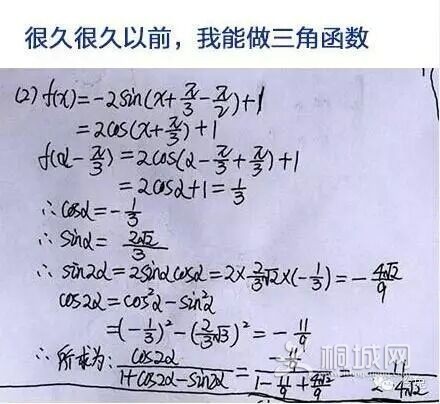 很久很久以前，我能做三角函数
(2) f(x)=-2sin(x+π/3-π/2)+1
=2cos(x+π/3)+1
f(α-π/3)=2cos(α-π/3+π/3)+1
=2cosα+1=1/3
∴cosα=-1/3
∴sinα=2√2/3
∴sin2α=2sinαcosα=2×2/3√2×(-1/3)=-4√2/9
cos2α=cos²α-sin²α
=(-1/3)²-(2/3√3)²=-11/9
∴所求为:cos2α/1+cos2α-sin2α=-11/9/1-11/9+4√2/9=11/4√2
桐城网